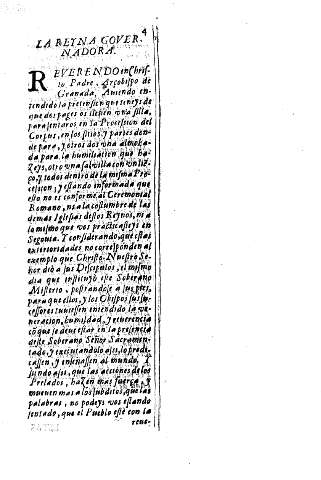 4
LA REYNA GOVER-
NADORA.
REVERENDO en Chris-
to Padre. Arçobispo de
Granada, Auiendo en-
tendido la pretension que teneys de
que dos pages os lleuen vna silla,
para sentaros en la Procession del
Corpus, en los sitios, y partes don-
de para, y otros dos vna almoha-
da para la humillacion que ha-
zeys, otro vna salvilla con vn lien-
ço, y todos dentro de la misma Pro-
cession, y estando informada que
esto no es conforme al Ceremonial
Romano, ni a la costumbre de las
demas Iglesias destos Reynos, ni a
lo mismo que vos practicasteys en
Segouia. Y considerando, que estas
exterioridades no corresponden al
exemplo que Christo Nuestro Se-
ñor dió a sus Discipulos, el mismo
dia que instituyó este Soberano
Misterio, postrandose a sus pies,
para que ellos, y los Obispos sus su-
cessores tuuiessen entendido la ve-
neracion, humildad, y reuerencia
cõ que se deue estar en la presencia
deste Soberano Señor Sacramen-
tado, y executandolo assi, lo predi-
cassen, y enseñassen al mundo. Y
siendo assi, que las acciones de los
Prelados, hazen mas fuerça, y
mueuen mas a los subditos, que las
palabras, no podeys vos estando
sentado, que el Pueblo estè con la
reue-